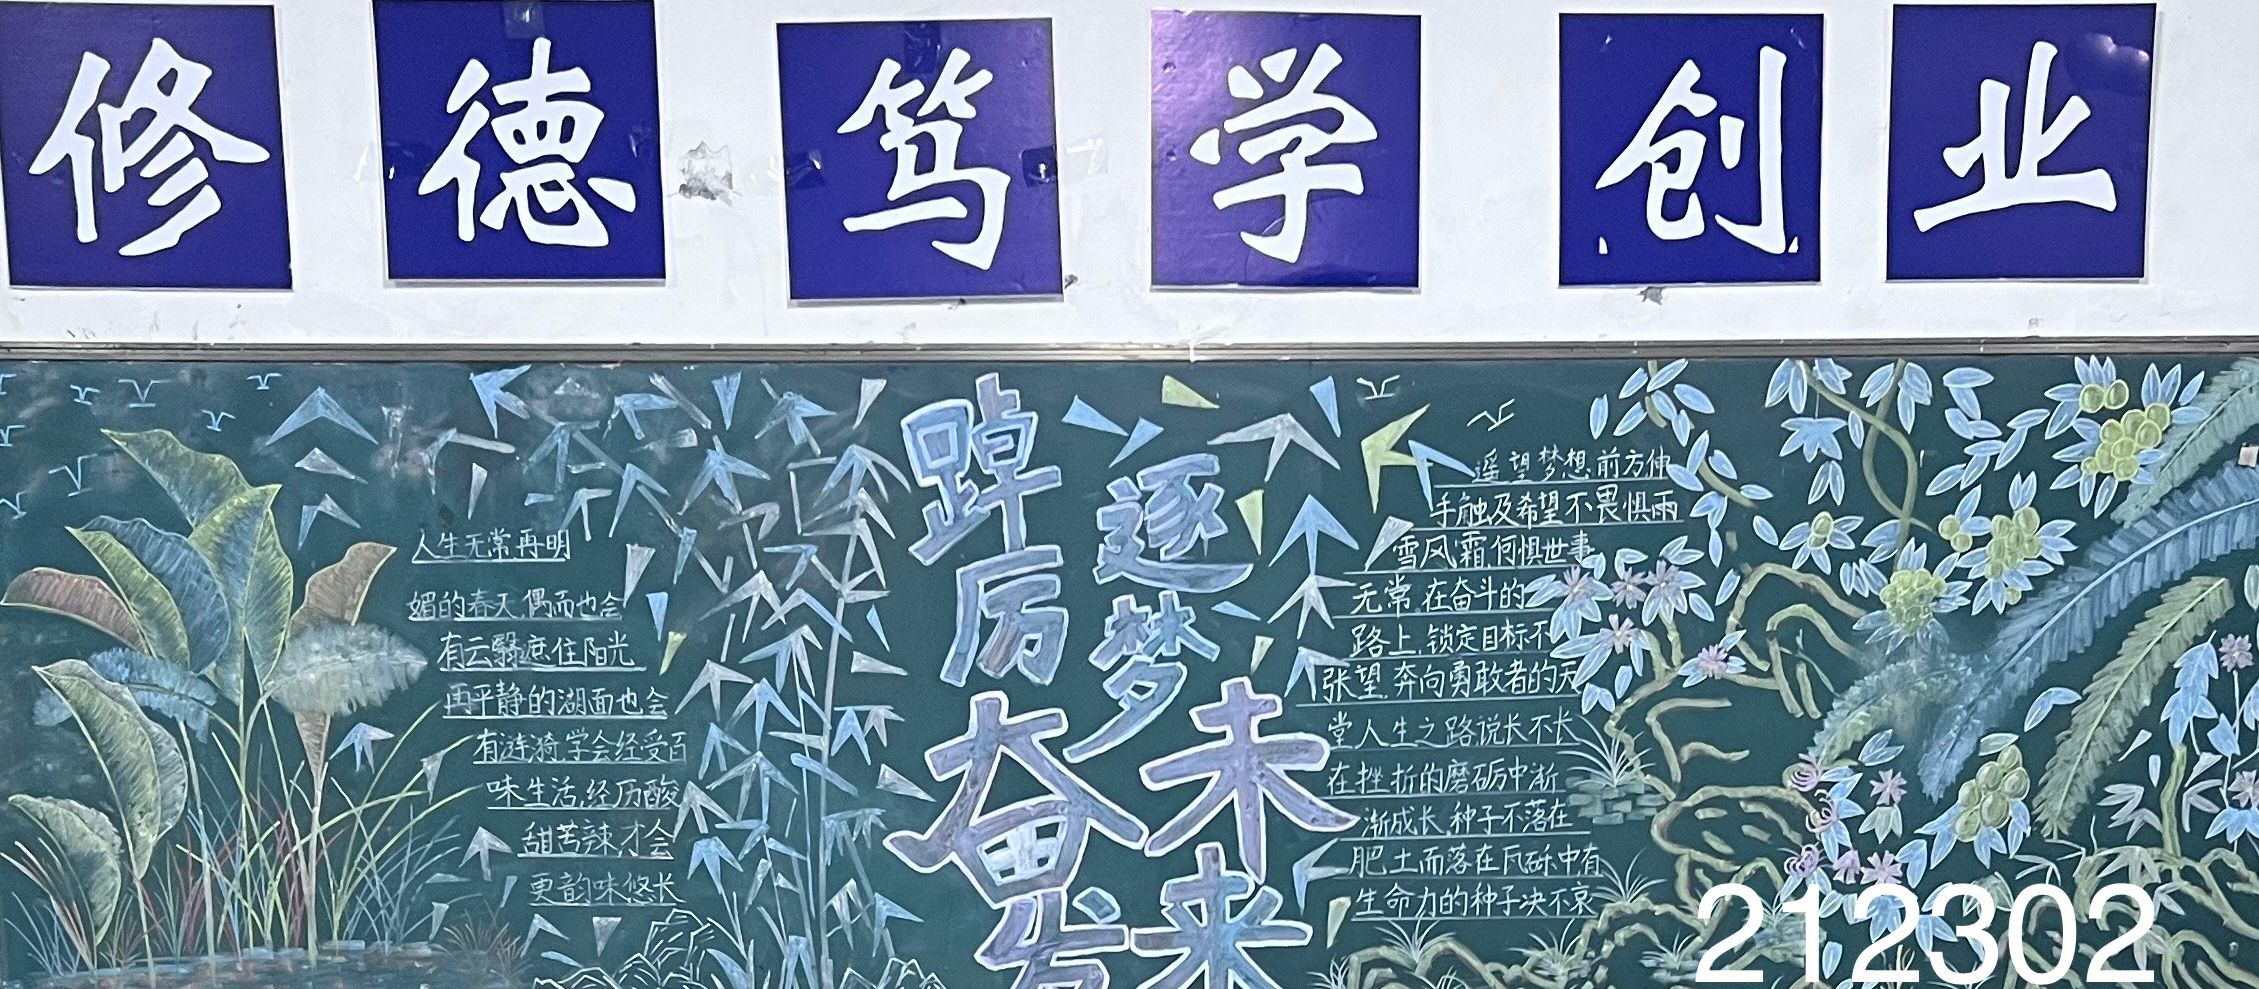 修德笃学创业
踔厉奋发
逐梦未来
人生无常再明
媚的春天,偶而也会
有云翳遮住阳光
再平静的湖面也会
有涟漪学会经受百
味生活,经历酸
甜苦辣,才会
更韵味悠长
遥望梦想,前方伸
手触及希望不畏惧雨
雪风霜,何惧世事
无常,在奋斗的
路上,锁定目标不
张望,奔向勇敢者的天
堂人生之路说长不长
在挫折的磨砺中渐
渐成长,种子不落在
肥土而落在瓦砾中有
生命力的种子决不哀
212302